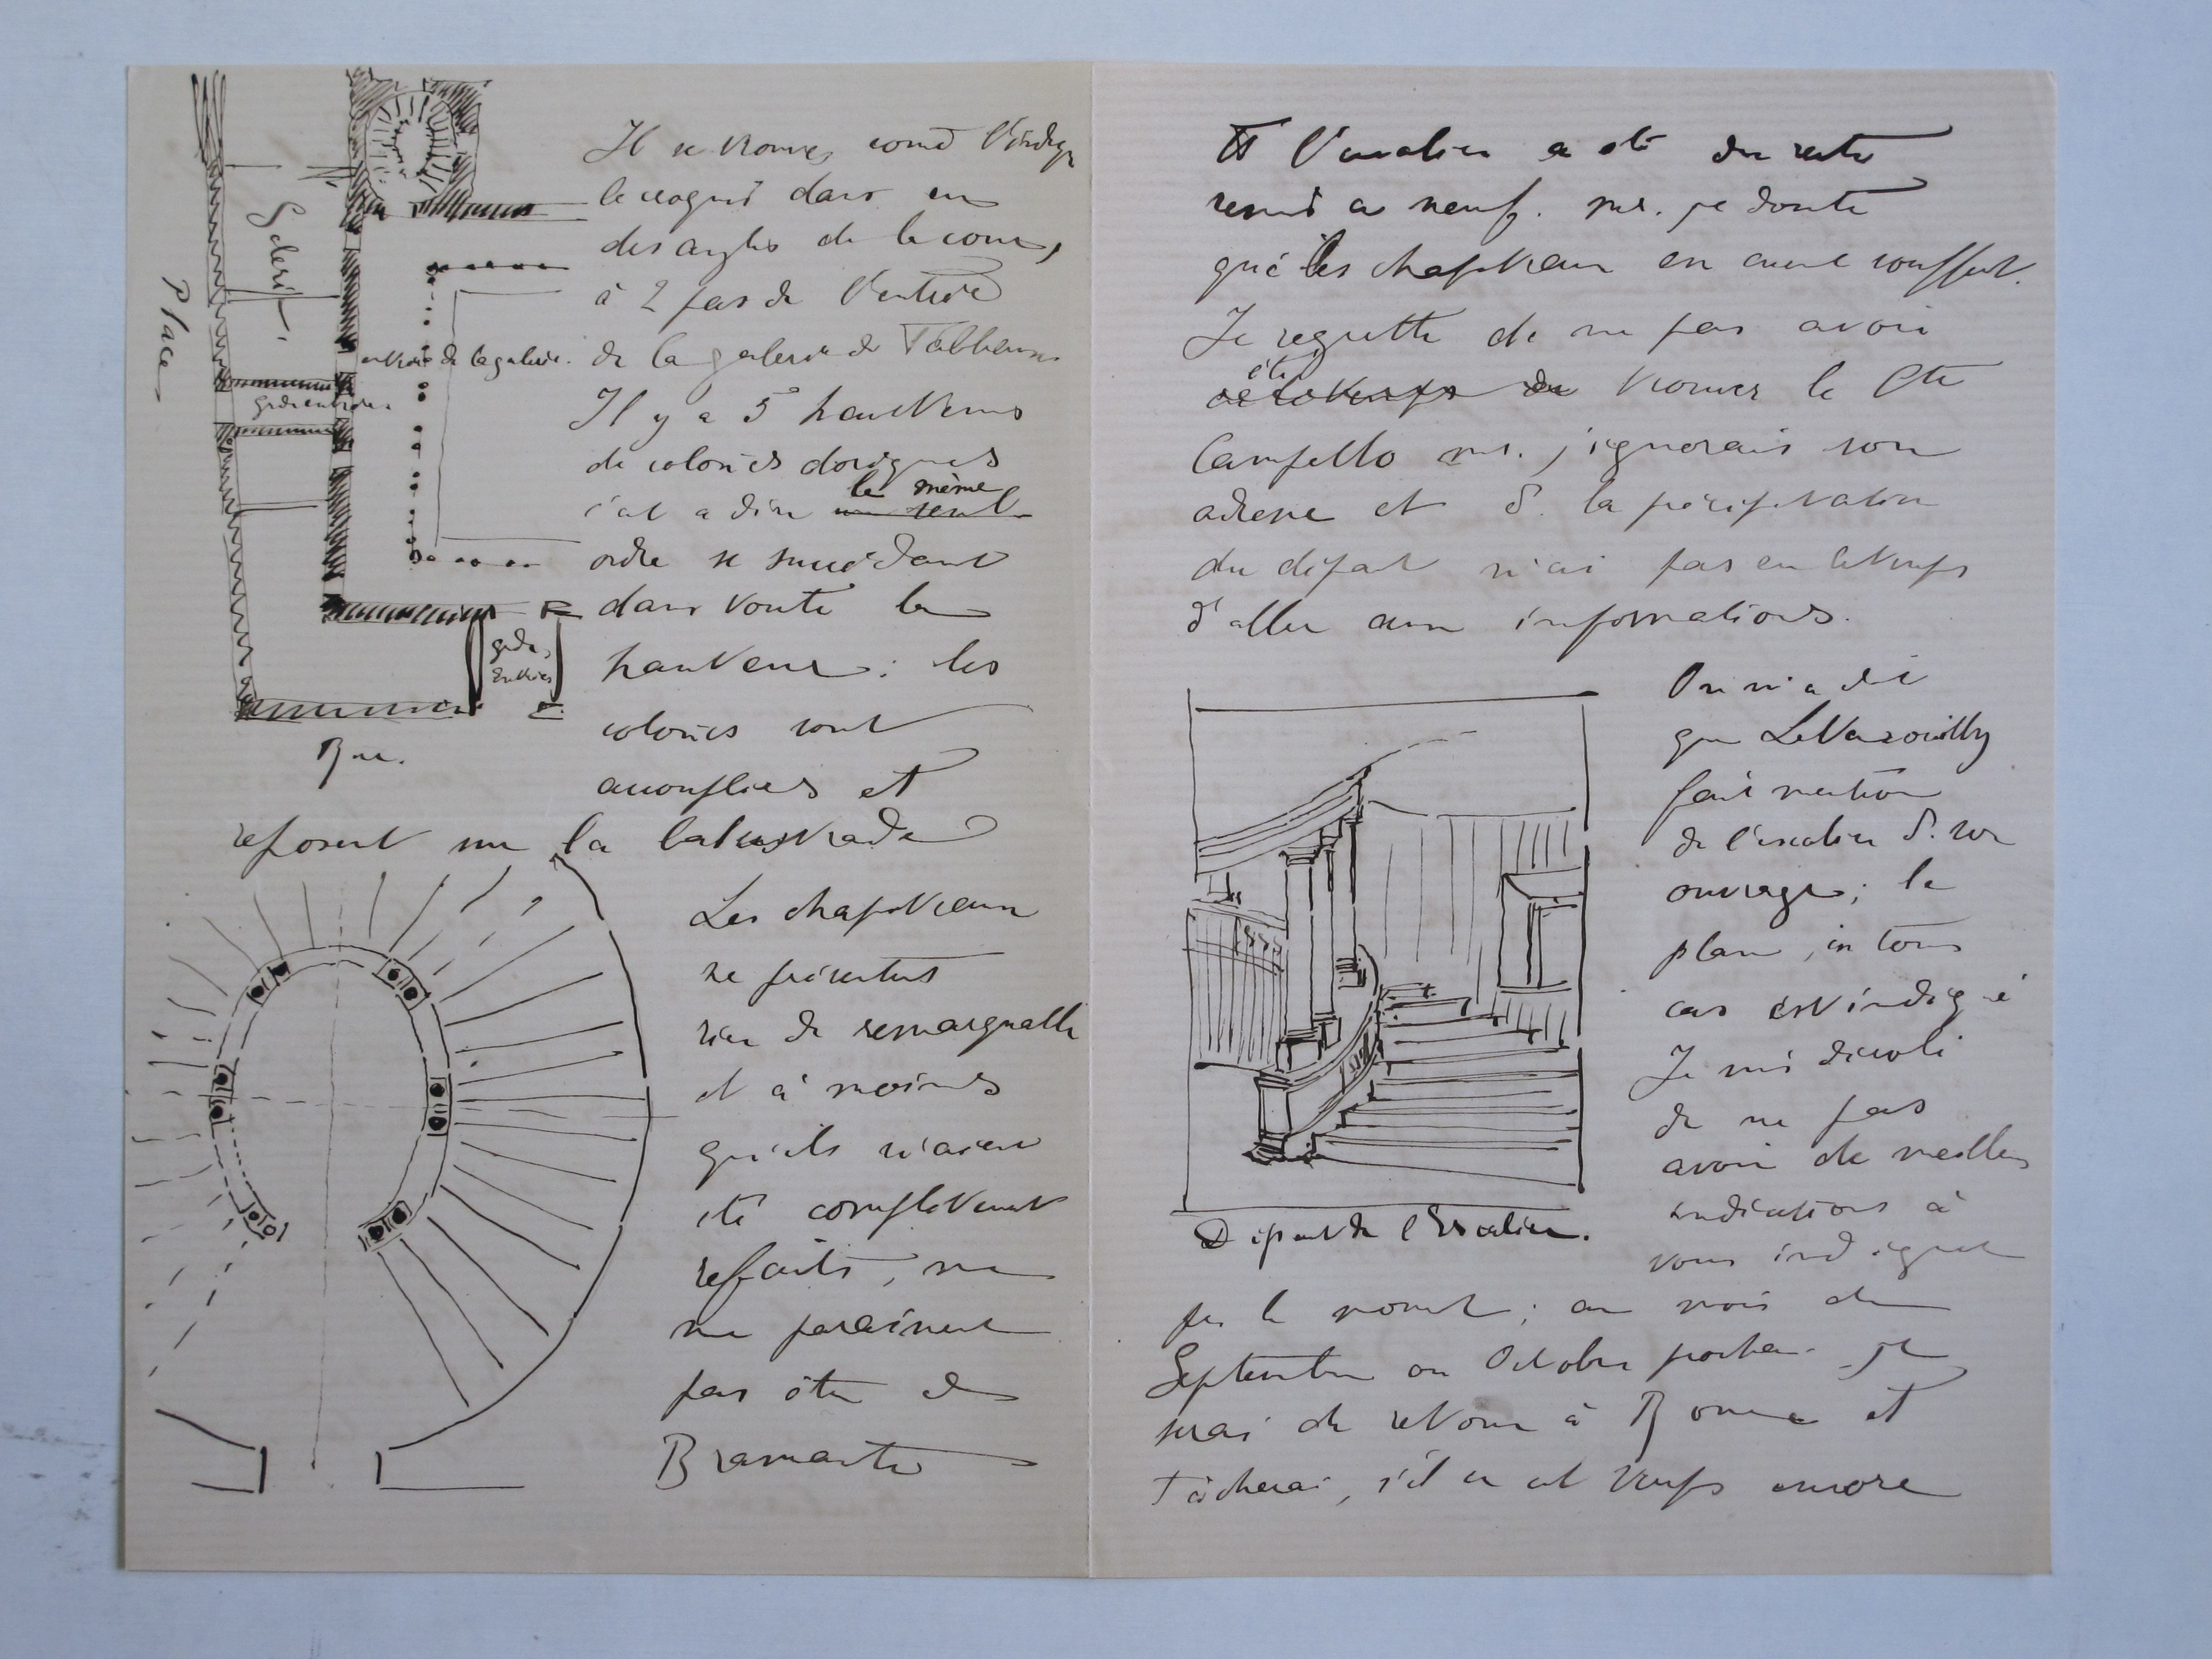 Il se trouve, come l'indiq
le croquis dans un
des angles de la cour,
à 2 pas de l'entrée
de la galerie de Tableaux
Il y a 5 hauteurs
de colones doriques
c'est a dire un seul
le même
ordre se succédant
dans toute la
hauteur : les
colones sont
accouplées et
reposent sur la balustrade
Galerie
Place
entrée de la galerie.
gde entrée
gde
Entrée
Rue.
Les chapiteaux
ne présentent
rien de remarquable
et à moins
qu'ils n'aient
été completement
refaits, ne
me paraissent
pas être de
Bramante
L'escalier a été du reste
remis a neuf. ms. je doute
que les chapiteaux en aient souffert.
Je regrette de ne pas avoir
été
trouver le Cte
Campello ms. j'ignorais son
adresse et d. la précipitation
du départ n'ai pas eu le temps
d'aller aux informations.
On m'a dit
que LeTarouilly
fait mention
de l'escalier d. son
ouvrage; le
plan, en tous
cas est indiqué
Je suis désolé
de ne pas
avoir de meilleures
indications à
vous indiquer
Départ de l'Escalier.
pr le momt; au mois de
Septembre ou Octobre prochain je
serai de retour à Rome et
tâcherai, s'il en est temps encore